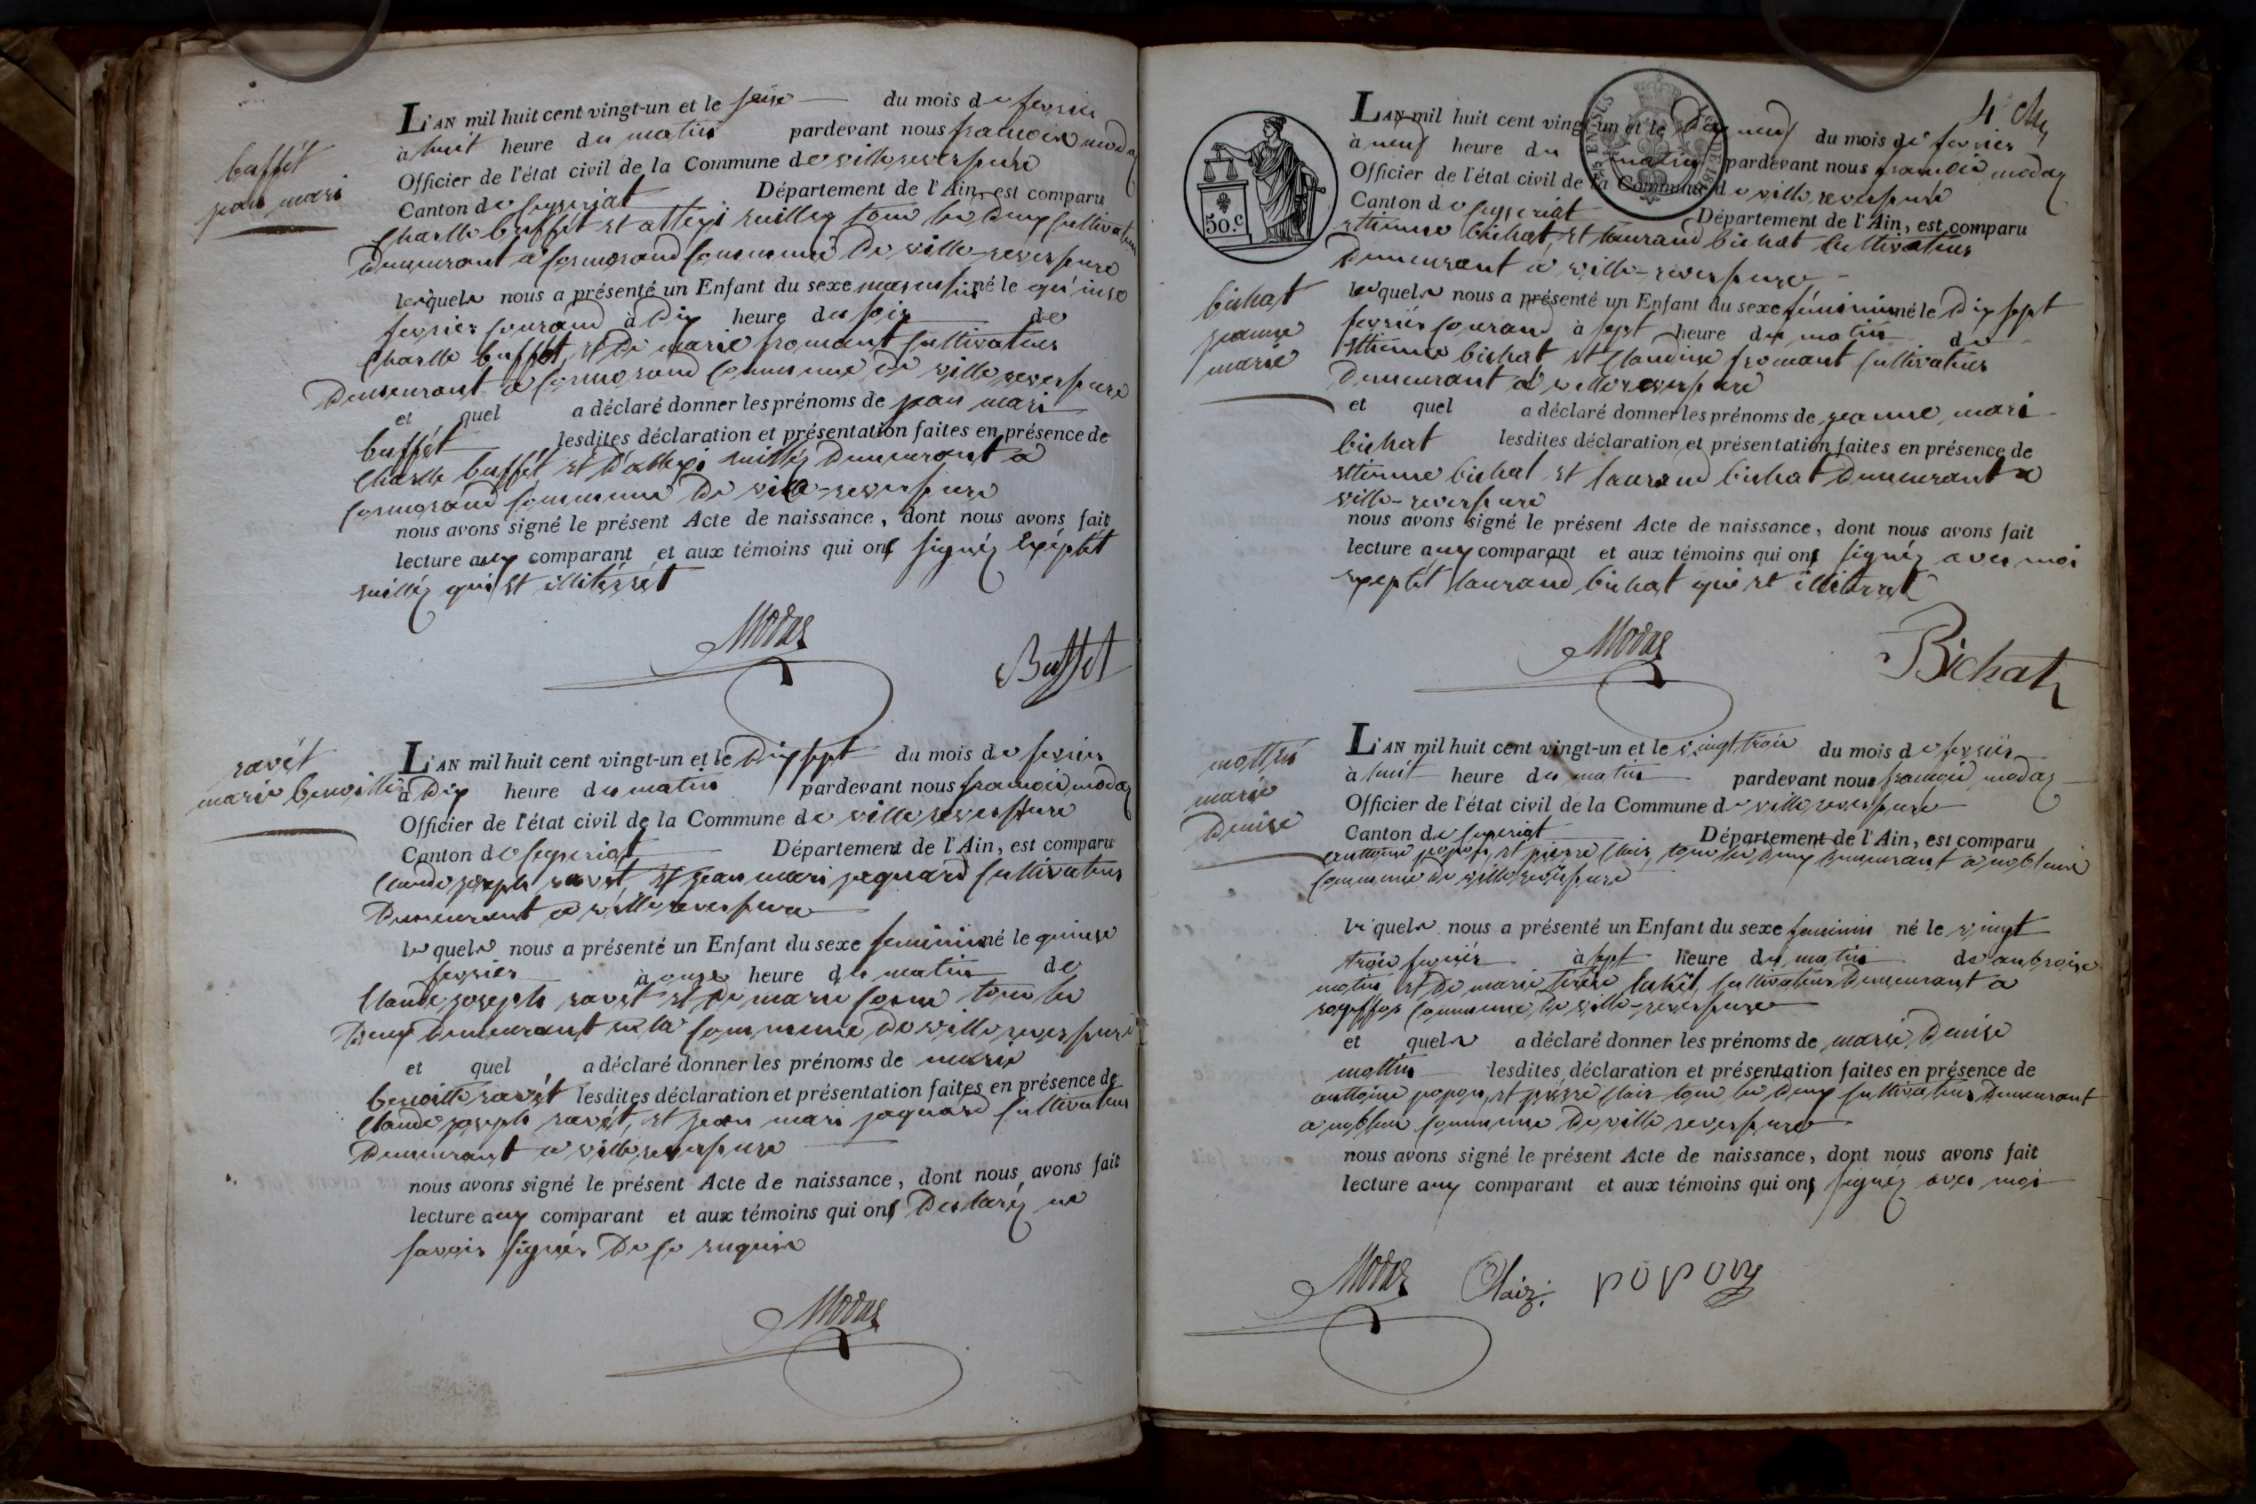 buffét
jean mari
L'AN mil huit cent vingt-un et le seise du mois de fevrier
à huit heure du matin pardevant nous francois modas
Officier de l'état civil de la Commune de villereversure
Canton de seyseriat Département de l'Ain, est comparu
Charlle buffét et allexi ruillez tous les deux Cultivateurs
Demeurant a Cormorand Commune De ville-reversure
lesquels nous a présenté un Enfant du sexe masculin né le quinse
fevrier Courand à Dix heure du soir de
Charlle buffét, et De marie fromant Cultivateurs
Demeurant a Cormorand Commune De villereversure
et quel a déclaré donner les prénoms de jean mari
buffét lesdites déclaration et présentation faites en présence de
Charlle buffét et D'allexi ruilléz Demeurant a
Cormorand Commune De ville-reversure
nous avons signé le présent Acte de naissance, dont nous avons fait
lecture aux comparant et aux témoins qui ont signéz Exéptét
ruilléz qui et illitérét
Modas
Buffet
ravét
marie benoitte
L'AN mil huit cent vingt-un et le Dix sept du mois de fevrier
à Dix heure du matin pardevant nous francois modas
Officier de l'état civil de la Commune de villereversure
Canton de seyseriat Département de l'Ain, est comparu
Claude joseph ravét, et jean mari jaquard Cultivateurs
Demeurant a villereversure
lesquels nous a présenté un Enfant du sexe feminin né le quinse
fevrier à onse heure du matin de
Claude joseph ravet et De marie Corne tous les
Deux Demeurant a la Commune De villereversure
et quel a déclaré donner les prénoms de marie
benoitte ravét lesdites déclaration et présentation faites en présence de
Claude joseph ravét, et jean mari jaquard Cultivateurs
Demeurant a villereversure
nous avons signé le présent Acte de naissance, dont nous avons fait
lecture aux comparant et aux témoins qui ont Desclaréz ne
savoir signér De Ce requise
Modas
4e
50.c
bichat
jeanne
marie
L'AN mil huit cent vingt-un et le Dix neuf du mois de fevrier
à neuf heure du matin pardevant nous francois modas
Officier de l'état civil de la Commune de villereversure
Canton de seyseriat Département de l'Ain, est comparu
ettienne bichat, et laurand bichat Cultivateurs
Demeurant a ville-reversure
lesquels nous a présenté un Enfant du sexe féminin né le Dix sept
fevriér Courand à sept heure du matin de
ettienne bichat et Claudine fromant Cultivateurs
Demeurant a villereversure
et quel a déclaré donner les prénoms de jeanne mari
bichat lesdites déclaration et présentation faites en présence de
ettienne bichat et laurand bichat Demeurant a
ville-reversure
nous avons signé le présent Acte de naissance, dont nous avons fait
lecture aux comparant et aux témoins qui ont signéz avec moi
exceptét laurand bichat qui et illiterret
Modas
Bichat
mottin
marie
Denise
L'AN mil huit cent vingt-un et le vingt trois du mois de fevriér
à huit heure du matin pardevant nous francois modas
Officier de l'état civil de la Commune de villereversure
Canton de seyseriat Département de l'Ain, est comparu
anttoine popon, et pierre Clair, tous les Deux Demeurant a noblens
Commune De villereversure
lesquels nous a présenté un Enfant du sexe feminin né le vingt
trois fevriér à sept heure du matin de anbroise
motin et De marie Cultivateurs Demeurant a
Commune De ville-reversure
et quels a déclaré donner les prénoms de marie Denise
mottin lesdites déclaration et présentation faites en présence de
anttoine popon, et piérre Clair tous les Deux Cultivateurs Demeurant
a noblens Commune De villereversure
nous avons signé le présent Acte de naissance, dont nous avons fait
lecture aux comparant et aux témoins qui ont signéz avec moi
Modas Clair popon